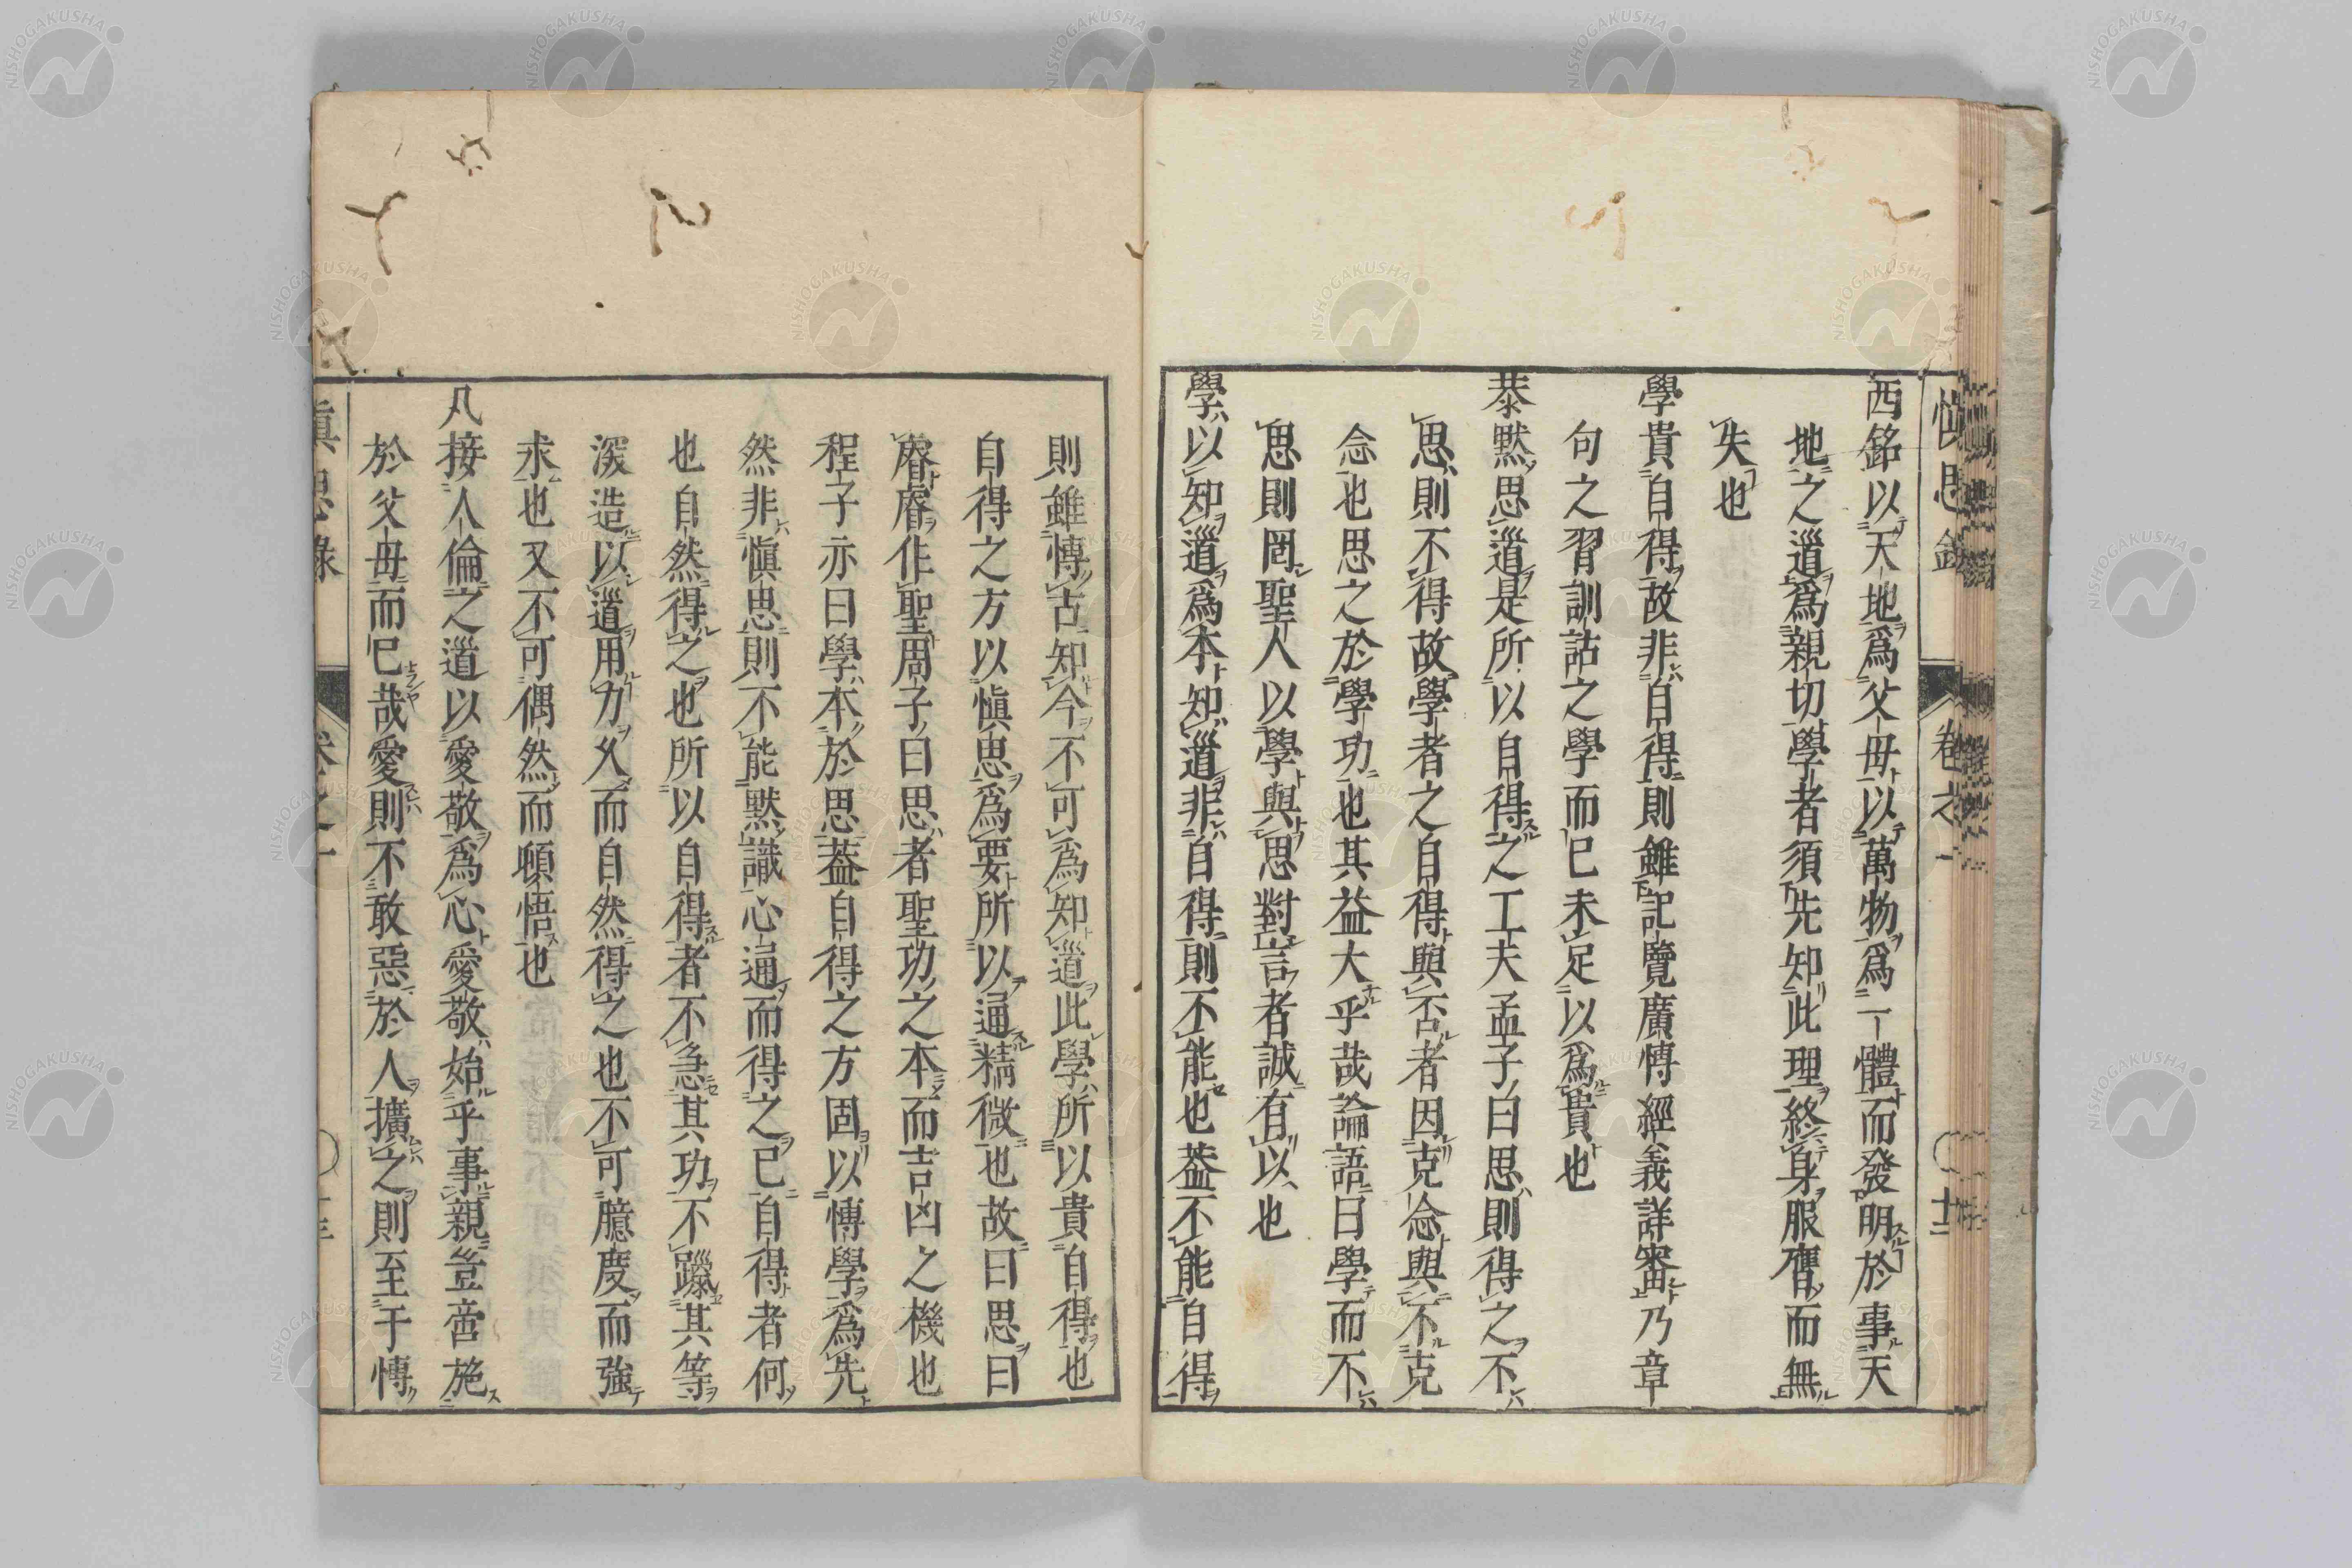 西銘以天地爲父母以萬物爲一體而發明於事天
地之道爲親切學者須先知此理終身服膺而無
失也
學貴自得故非自得則雖記覽廣博經義詳審乃章
句之習訓詁之學而已未足以爲貴也
恭默思道是所以自得之工夫孟子曰思則得之不
思則不得故學者之自得與否者因克念與不克
念也思之於學功也其益大乎哉論語曰學而不
思則罔聖人以學與思對言者誠有以也
學以知道爲本知道非自得則不能也葢不能自得
則雖博古知今不可爲知道此學所以貴自得也
自得之方以愼思爲要所以通精微也故曰思曰
睿睿作聖周子曰思者聖功之本而吉凶之機也
程子亦曰學本於思葢自得之方固以博學爲先
然非愼思則不能默識心通而得之已自得者何
也自然得之也所以自得者不急其功不躐其等
深造以道用力久而自然得之也不可臆度而強
求也又不可偶然而頓悟也
凡接人倫之道以愛敬爲心愛敬始乎事親豈啻施
於父母而已哉愛則不敢惡於人擴之則至于博
愼思錄 卷之一 十二
NISHOGAKUSHA